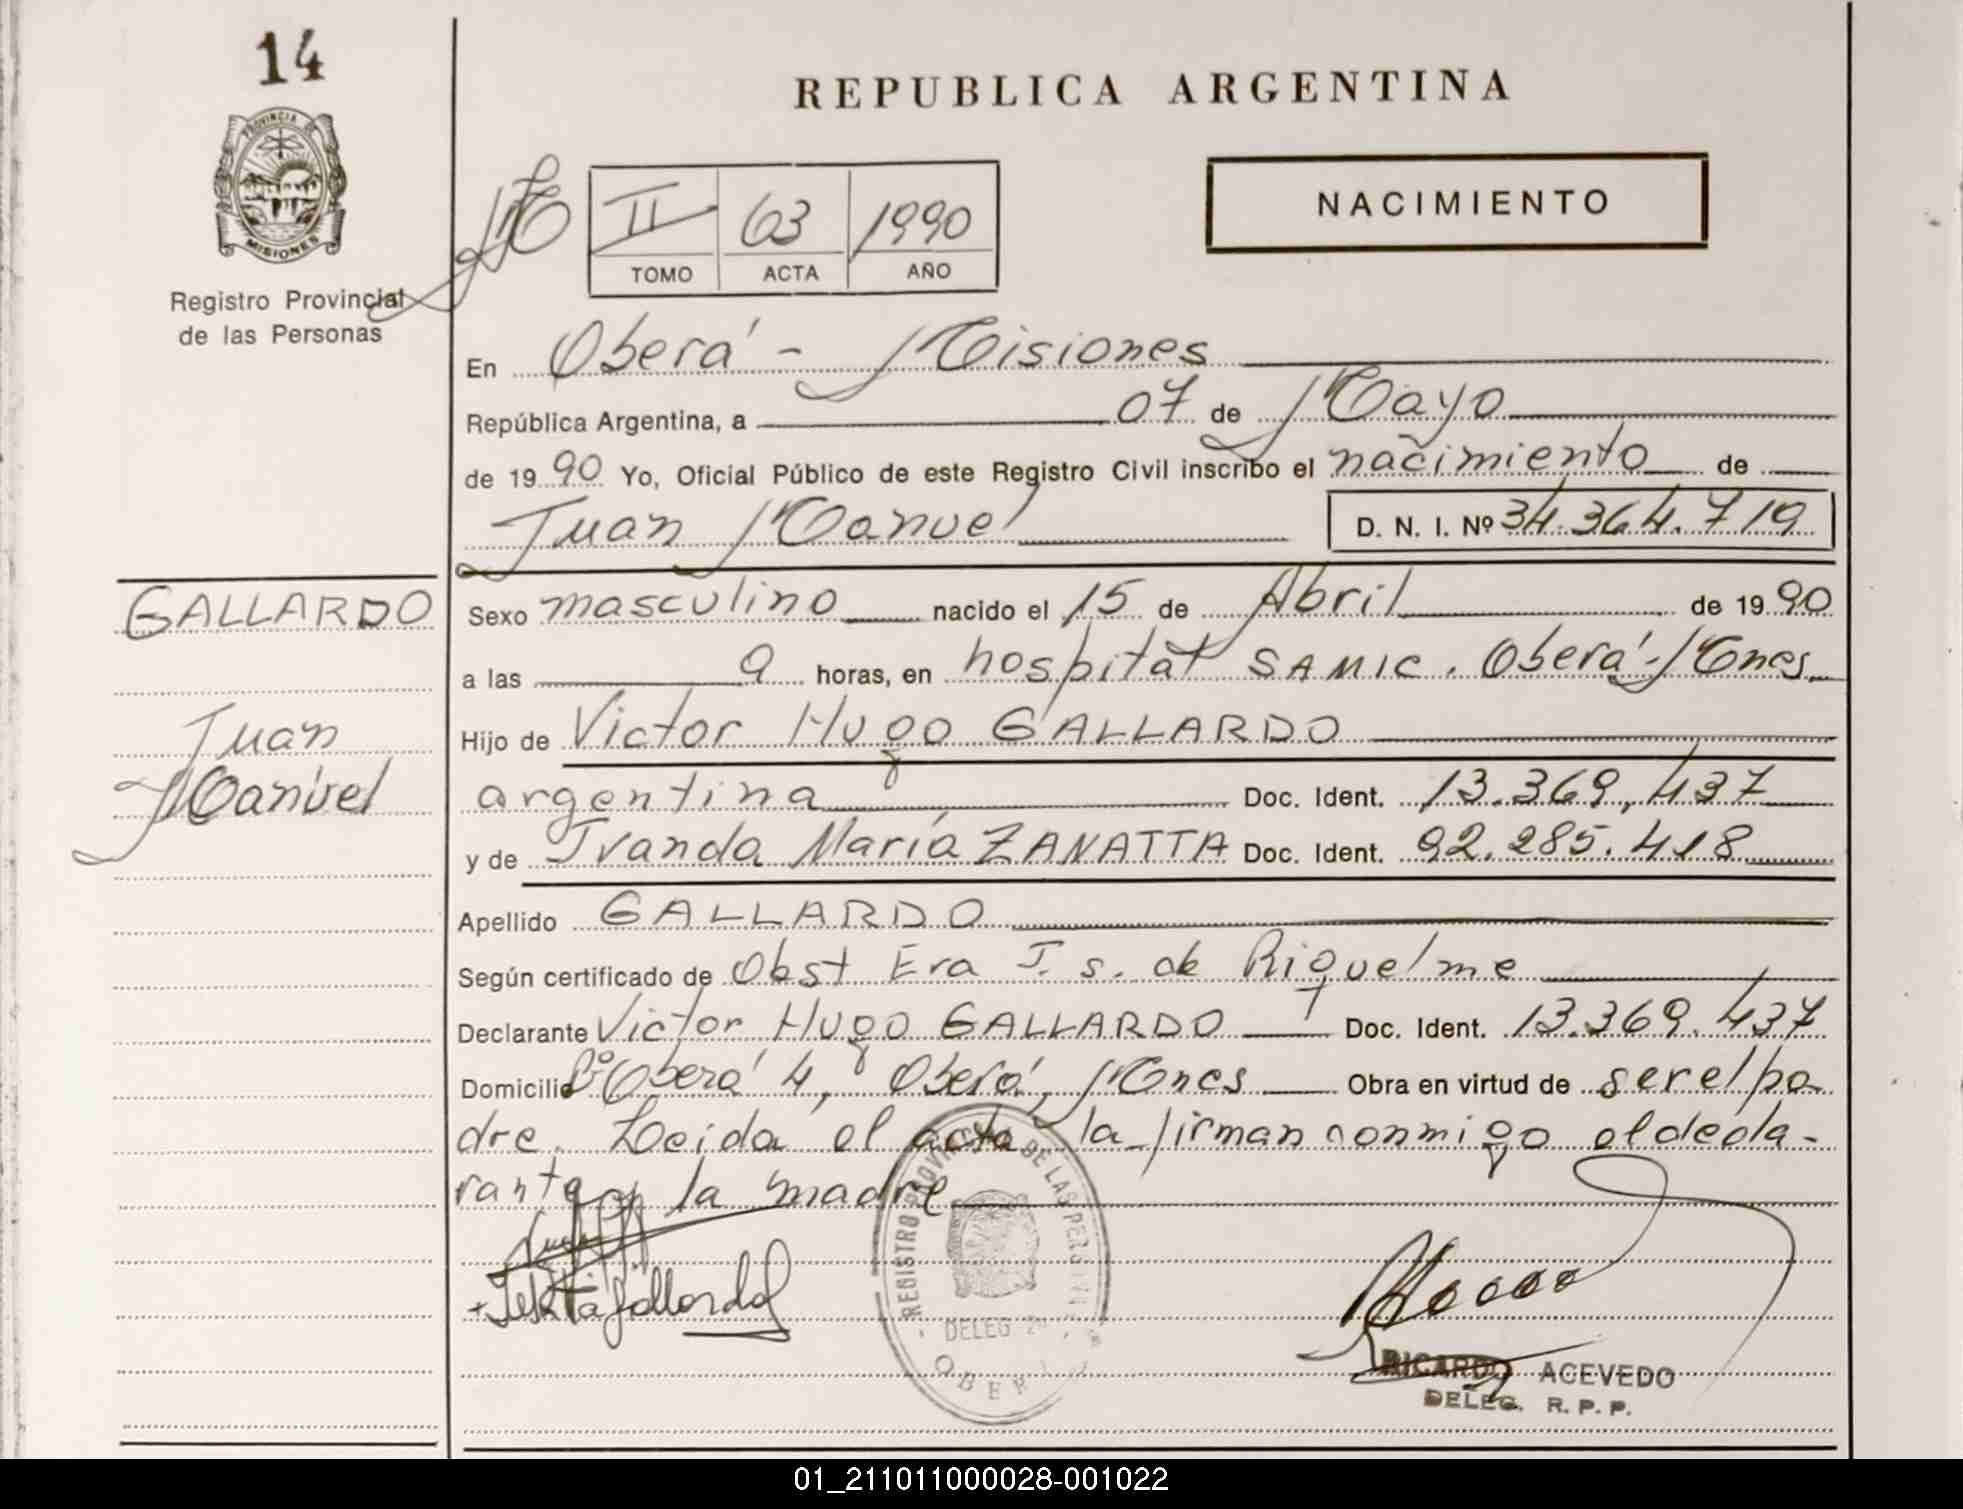 14
REPUBLICA ARGENTINA
PROVINCIA DE
MISIONES
Registro Provincial
de las Personas
II 63 1990
TOMO ACTA AÑO
NACIMIENTO
En Oberá - Misiones
República Argentina, a 07 de Mayo
de 1990 Yo, Oficial Público de este Registro Civil inscribo el nacimiento de
Juan Manuel D. N. I. Nº 34.364.719
GALLARDO
Juan
Manuel
Sexo masculino nacido el 15 de Abril de 1990
a las 9 horas, en hospital SAMIC. Oberá - Mnes.
Hijo de Victor Hugo GALLARDO
argentina Doc. Ident. 13.369.437
y de Ivanda María ZANATTA Doc. Ident. 92.285.418
Apellido GALLARDO
Según certificado de Obst Era J. S. de Riquelme
Declarante Victor Hugo GALLARDO Doc. Ident. 13.369.437
Domicilio Bº Oberá 4, Oberá, Mnes Obra en virtud de ser el pa
dre. Leida el acta la firman conmigo el decla-
rante y la madre
REGISTRO PROVINCIAL DE LAS PERSONAS
DELEG
OBERA
RICARDO ACEVEDO
DELEG. R. P. P.
01_211011000028-001022